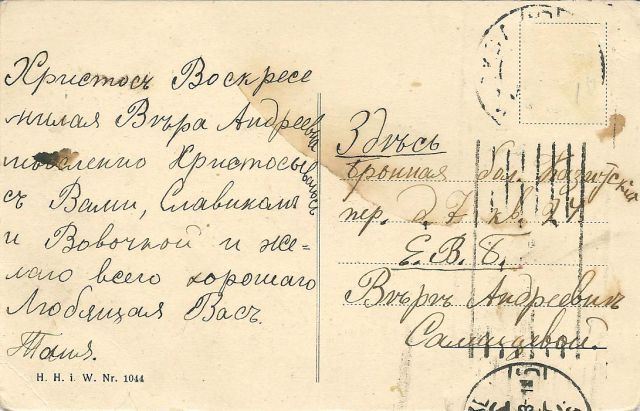 Христосъ Воскресе
милая Вѣра Андреевна
мысленно Христосываюсь
съ Вами, Славикомъ
и Вовочкой и же-
лаю всего хорошаго
Любящая Васъ
Таня.
H. H. i. W. Nr. 1044
Здѣсь
Бронная бол.
пер. д. 7 кв. 24
Е. В. Б.
Вѣрѣ Андреевнѣ